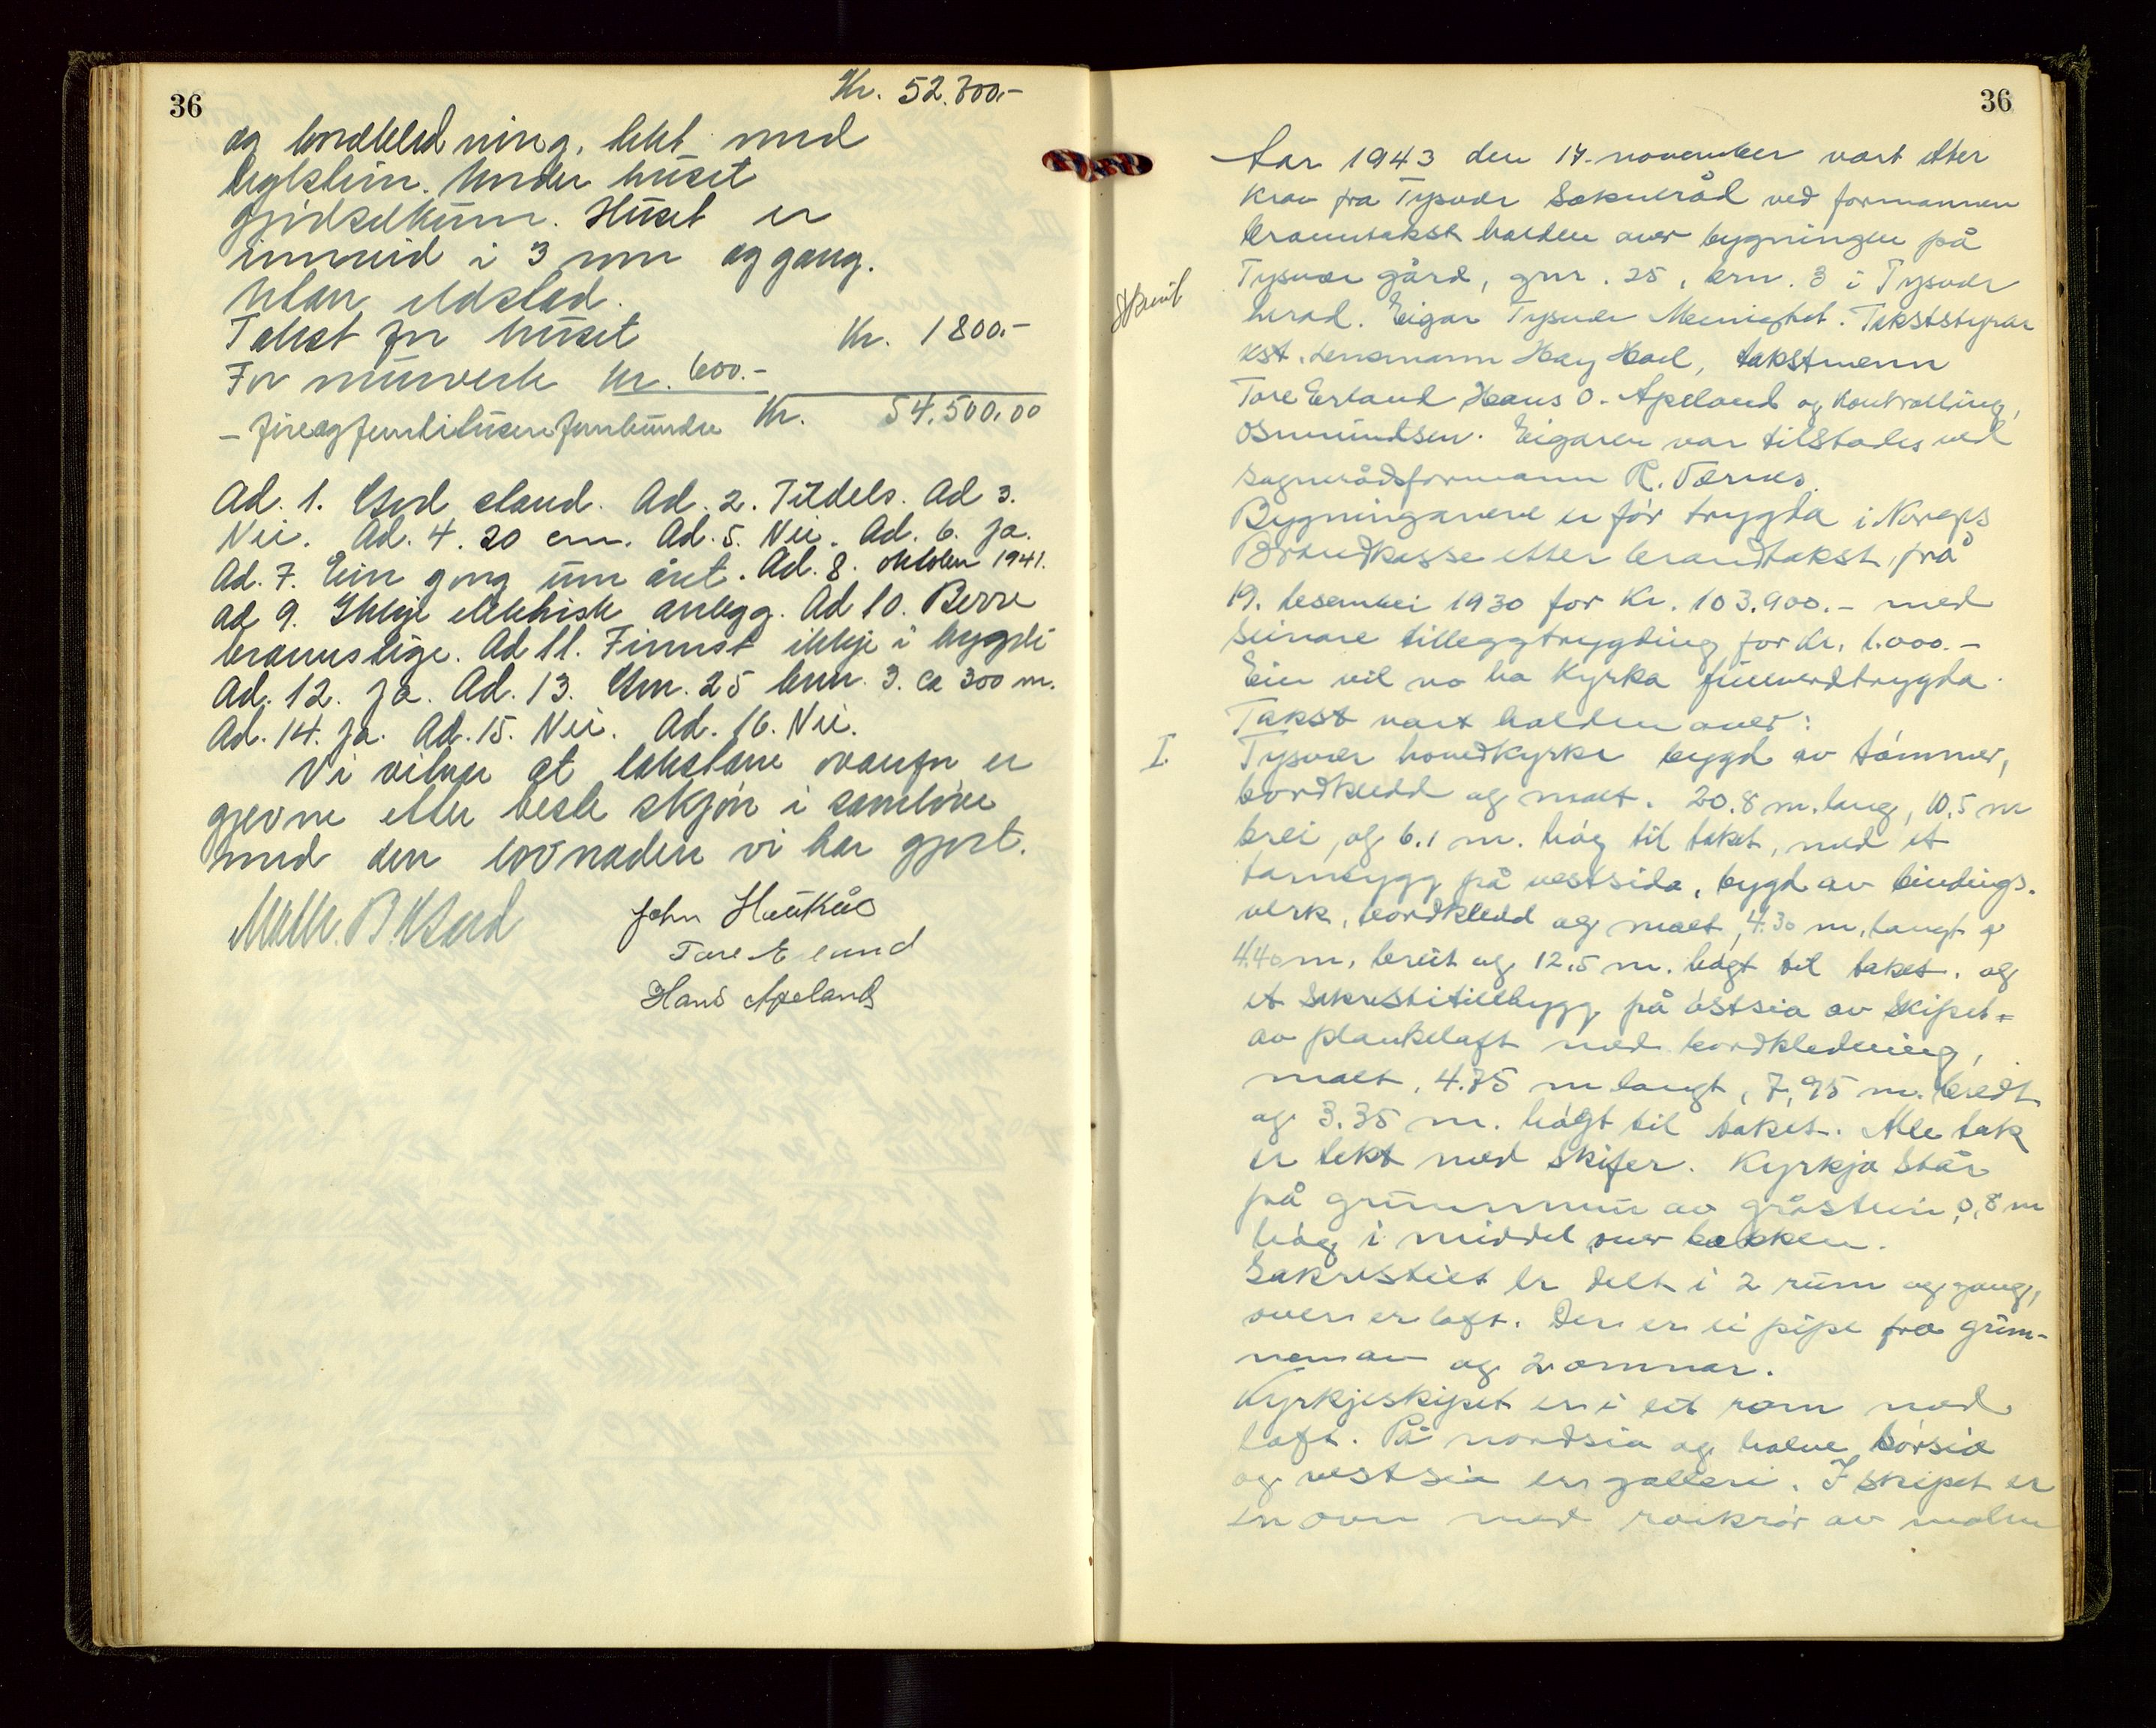 36
Kr. 52.700.-
og bordkledning, tekt med
teglstein. Under huset
gjødselkum. Huset er
innreid i 3 rom og gang.
Utan eldstad.
Takst for huset Kr. 1800.-
For murverk kr. 600.-
- fireogfemtitusenfemhundre Kr. 54.500,00
Ad. 1. God stand. Ad. 2. Tildels. Ad 3.
Nei. Ad. 4. 20 cm. Ad. 5. Nei. Ad. 6. Ja.
Ad. 7. Ein gong um året. Ad. 8. oktober 1941.
Ad 9. Ikkje elektrisk anlegg. Ad 10. Berre
brannstige. Ad 11. Finnst ikkje i bygdi
Ad. 12. Ja. Ad. 13. Gnr. 25 bnr. 3. ca 300 m.
Ad. 14. Ja. Ad. 15. Nei. Ad. 16. Nei.
Vi vitnar at takstane ovanfor er
gjevne etter beste skjøn i samhøve
med den lovnaden vi har gjort.
John Haukås
Tore Erland
Hans Apeland
36
Aar 1943 den 17. november vart etter
krav fra Tysvær Sokneråd ved formannen
branntakst halden over bygningen på
Tysvær gård, gnr. 25, brn. 3 i Tysvær
herad. Eigar Tysvær Menighet. Takststyrar
kst. lensmann Hay Hoel, takstmenn
Tore Erland Hans O. Apeland og Kontrolling,
Osmundsen. Eigaren var tilstades ved
sognerådsformann R. Værnes.
Bygningarne er før trygda i Noregs
Brandkasse etter brandtakst frå
19. desember 1930 for Kr. 103.900.- med
seinare tilleggtrygding for kr. 1.000.-
Ein vil no ha Kyrka fullverdtrygda.
Takst vart halden over:
I Tysvær hovedkyrke bygd av tømmer,
bordkledd og malt. 20.8 m. lang, 10.5 m
brei, og 6.1 m. høg til taket, med et
tarnbygg på vestsida, bygd av bindings-
verk, bordkledd og malt, 4.30 m. langt og
4.40 m. breit og 12,5 m. høgt til taket, og
et sakristitilbygg på østsia av skipet =
av plankelaft med bordkledning,
malt, 4.75 m langt, 7,95 m. bredt
og 3.35 m. høgt til taket. Alle tak
er tekt med skifer. Kyrkja står
på grunnmur av gråstein 0,8 m
høg i middel over bakken.
Sakristiet er delt i 2 rum og gang,
oven er loft. Der er ei pipe fra grun-
nen av og 2 omnar.
Kyrkjeskipet er i eit rom med
loft. På nordsia og halve sørsia
og vestsia er galleri. I skipet er
en ovn med røikrør av malm